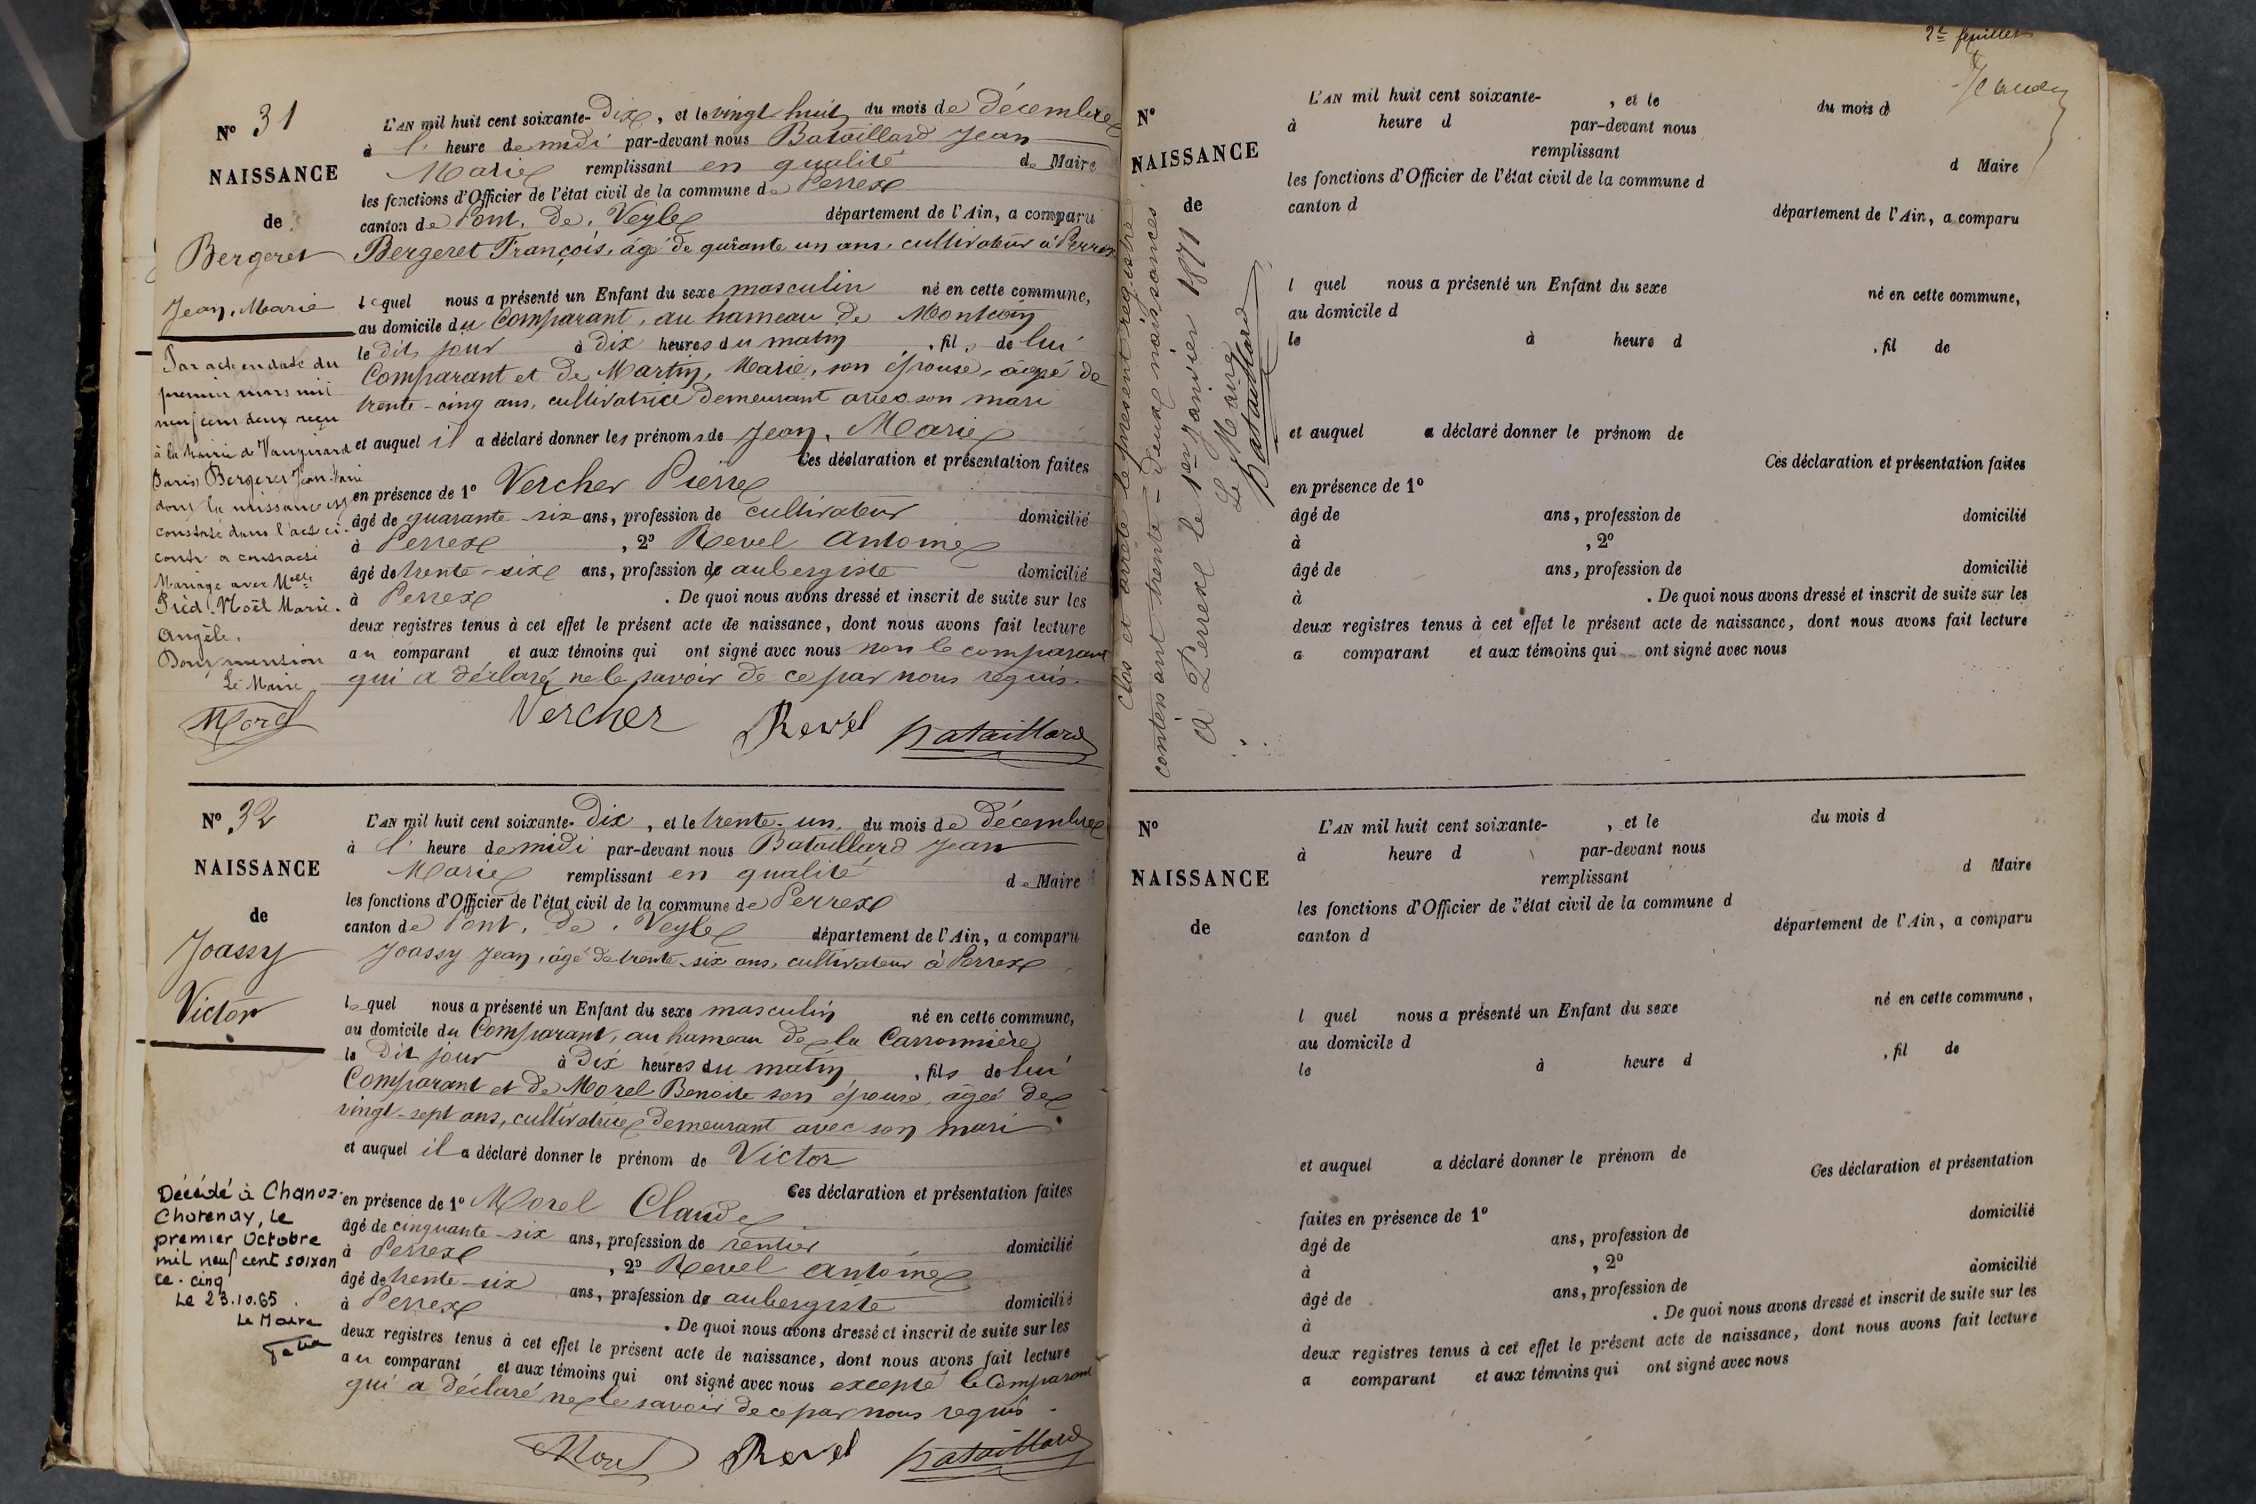 N° 31
NAISSANCE
de
Bergeret
Jean, Marie
Par acte en date du
premier mars mil
neuf cent deux reçu
à la Mairie de Vaugirard
Paris, Bergeret Jean-Marie
dont la naissance est
constatée dans l'acte ci-
contre a contracté
Mariage avec Melle
Pièd. Noël Marie.
Angèle.
Dont mention
Le Maire
Morel
L'AN mil huit cent soixante-dix, et le vingt huit du mois de décembre
à l' heure de midi par-devant nous Bataillard Jean
Marie remplissant en qualité de Maire
les fonctions d'Officier de l'état civil de la commune de Perrex
canton de Pont. de. Veyle département de l'Ain, a comparu
Bergeret François, âgé de qurante un ans, cultivateur à Perrex
lequel nous a présenté un Enfant du sexe masculin né en cette commune,
au domicile du Comparant, au hameau de Montcoin
le dit jour à dix heures du matin, fils de lui
Comparant et de Martin, Marie, son épouse, âgée de
trente-cinq ans, cultivatrice demeurant avec son mari
et auquel il a déclaré donner les prénoms de Jean, Marie
Ces déclaration et présentation faites
en présence de 1° Vercher Pierre
âgé de quarante-six ans, profession de cultivateur domicilié
à Perrex, 2° Revel Antoine
âgé de trente-six ans, profession de aubergiste domicilié
à Perrex. De quoi nous avons dressé et inscrit de suite sur les
deux registres tenus à cet effet le présent acte de naissance, dont nous avons fait lecture
au comparant et aux témoins qui ont signé avec nous non le comparant
qui a déclaré ne le savoir de ce par nous requis.
Vercher Revel Bataillard
N° 32
NAISSANCE
de
Joassy
Victor
Décédé à Chanoz-
Chatenay, le
premier Octobre
mil neuf cent soixan
te-cinq
Le 23.10.65
Le Maire
L'AN mil huit cent soixante-Dix, et le trente-un du mois de décembre
à l' heure de midi par-devant nous Bataillard Jean
Marie remplissant en qualité de Maire
les fonctions d'Officier de l'état civil de la commune de Perrex
canton de Pont. de. Veyle département de l'Ain, a comparu
Joassy Jean, âgé de trente-six ans, cultivateur à Perrex
lequel nous a présenté un Enfant du sexe masculin né en cette commune,
au domicile du Comparant, au hameau de la Carronnière
le Dit jour à Dix heures du matin, fils de lui
Comparant et de Morel Benoite son épouse, âgée de
vingt-sept ans, cultivatrice demeurant avec son mari
et auquel il a déclaré donner le prénom de Victor
Ces déclaration et présentation faites
en présence de 1° Morel Claude
âgé de cinquante-six ans, profession de rentier domicilié
à Perrex, 2° Revel Antoine
âgé de trente-six ans, profession de aubergiste domicilié
à Perrex. De quoi nous avons dressé et inscrit de suite sur les
deux registres tenus à cet effet le présent acte de naissance, dont nous avons fait lecture
au comparant et aux témoins qui ont signé avec nous excepté le Comparant
qui a déclaré ne le savoir de ce par nous requis.
Morel Revel Bataillard
2e feuillet
Clos et arrêté le présent registre
contenant trente-deux naissances
à Perrex le 1er janvier 1871
Le Maire
Bataillard
N°
NAISSANCE
de
L'AN mil huit cent soixante- , et le du mois d
à heure d par-devant nous
remplissant d Maire
les fonctions d'Officier de l'état civil de la commune d
canton d département de l'Ain, a comparu
l quel nous a présenté un Enfant du sexe né en cette commune,
au domicile d
le à heure d , fil de
et auquel a déclaré donner le prénom de
Ces déclaration et présentation faites
en présence de 1°
âgé de ans, profession de domicilié
à , 2°
âgé de ans, profession de domicilié
à . De quoi nous avons dressé et inscrit de suite sur les
deux registres tenus à cet effet le présent acte de naissance, dont nous avons fait lecture
a comparant et aux témoins qui ont signé avec nous
N°
NAISSANCE
de
L'AN mil huit cent soixante- , et le du mois d
à heure d par-devant nous
remplissant d Maire
les fonctions d'Officier de l'état civil de la commune d
canton d département de l'Ain, a comparu
l quel nous a présenté un Enfant du sexe né en cette commune,
au domicile d
le à heure d , fil de
et auquel a déclaré donner le prénom de
Ces déclaration et présentation
faites en présence de 1° domicilié
âgé de ans, profession de
à , 2° domicilié
âgé de ans, profession de
à . De quoi nous avons dressé et inscrit de suite sur les
deux registres tenus à cet effet le présent acte de naissance, dont nous avons fait lecture
a comparant et aux témoins qui ont signé avec nous